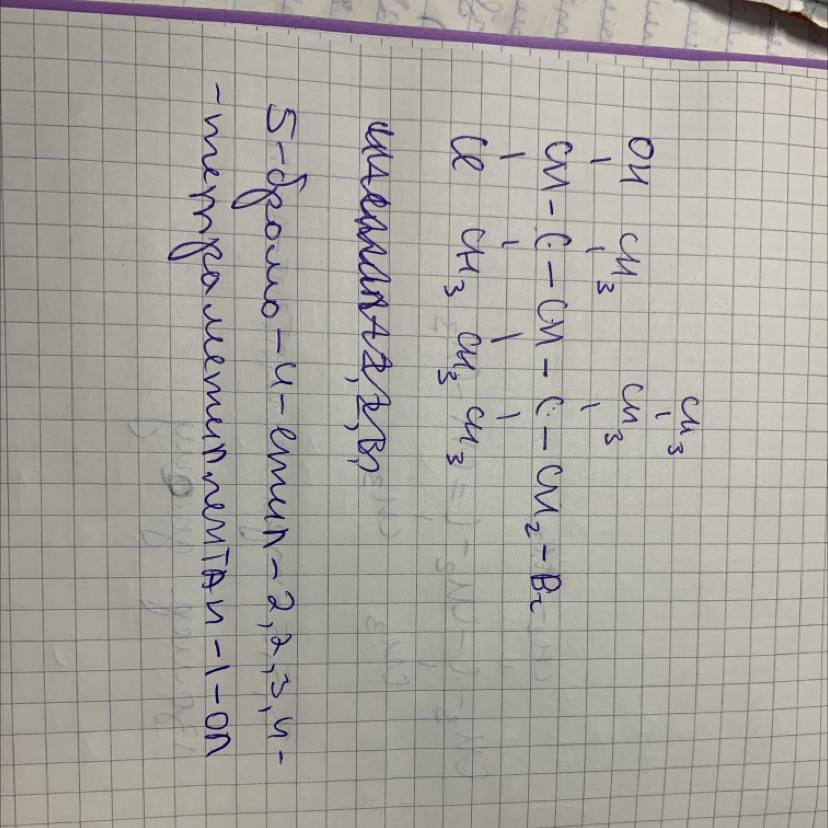 CH₃
OH CH₃ CH₃
CH - C - CH - C - CH₂ - Br
Cl CH₃ CH₃ CH₃
5-бромо-4-етил-2,2,3,4-
-тетраметилпентан-1-ол